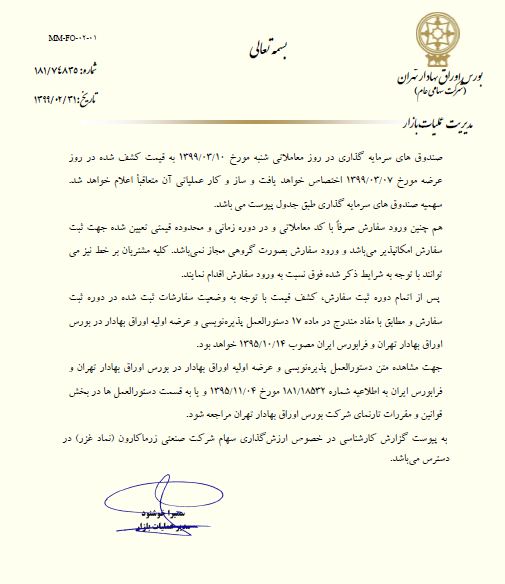 MM-FO-۰۲-۰۱
بسمه تعالی
شماره: ۱۸۱/۷۴۸۳۵
تاریخ: ۱۳۹۹/۰۲/۳۱
بورس اوراق بهادار تهران
(شرکت سهامی عام)
مدیریت عملیات بازار
صندوق های سرمایه گذاری در روز معاملاتی شنبه مورخ ۱۳۹۹/۰۳/۱۰ به قیمت کشف شده در روز
عرضه مورخ ۱۳۹۹/۰۳/۰۷ اختصاص خواهد یافت و ساز و کار عملیاتی آن متعاقباً اعلام خواهد شد.
سهمیه صندوق های سرمایه گذاری طبق جدول پیوست می باشد.
هم چنین ورود سفارش صرفاً با کد معاملاتی و در دوره زمانی و محدوده قیمتی تعیین شده جهت ثبت
سفارش امکانپذیر می‌باشد و ورود سفارش بصورت گروهی مجاز نمی‌باشد. کلیه مشتریان بر خط نیز می
توانند با توجه به شرایط ذکر شده فوق نسبت به ورود سفارش اقدام نمایند.
پس از اتمام دوره ثبت سفارش، کشف قیمت با توجه به وضعیت سفارشات ثبت شده در دوره ثبت
سفارش و مطابق با مفاد مندرج در ماده ۱۷ دستورالعمل پذیره‌نویسی و عرضه اولیه اوراق بهادار در بورس
اوراق بهادار تهران و فرابورس ایران مصوب ۱۳۹۵/۱۰/۱۴ خواهد بود.
جهت مشاهده متن دستورالعمل پذیره‌نویسی و عرضه اولیه اوراق بهادار در بورس اوراق بهادار تهران و
فرابورس ایران به اطلاعیه شماره ۱۸۱/۱۸۵۳۲ مورخ ۱۳۹۵/۱۱/۰۴ و یا به قسمت دستورالعمل ها در بخش
قوانین و مقررات تارنمای شرکت بورس اوراق بهادار تهران مراجعه شود.
به پیوست گزارش کارشناسی در خصوص ارزش‌گذاری سهام شرکت صنعتی زرماکارون (نماد غزر) در
دسترس می‌باشد.
خوشنود
مدیر عملیات بازار